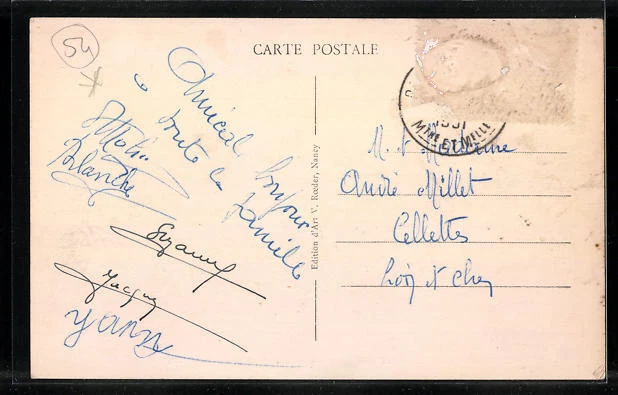 54
CARTE POSTALE
Amical bonjour
à toute la famille
Blanche
Suzanne
Jacques
yann
Edition d'Art V. Rœder, Nancy
MTHE ET MELLE
M. et Madame
André Millet
Cellettes
Loir et Cher